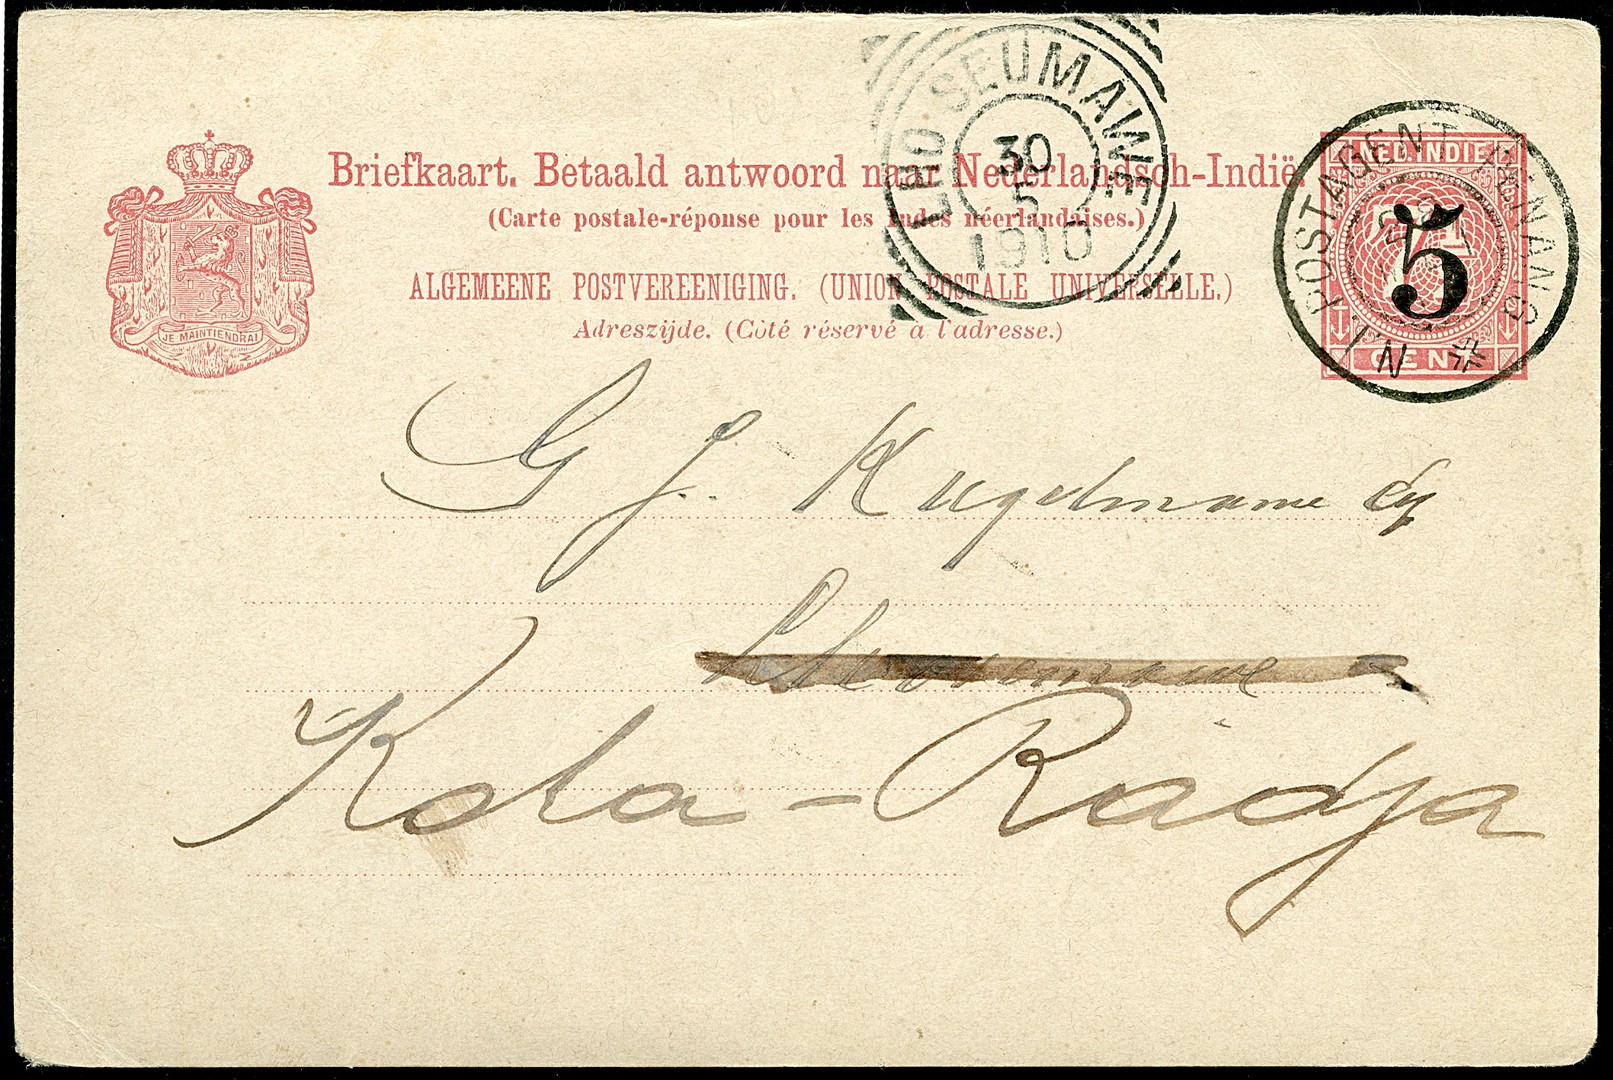 Briefkaart. Betaald antwoord naar Nederlandsch-Indië.
(Carte postale-réponse pour les Indes néerlandaises.)
ALGEMEENE POSTVEREENIGING. (UNION POSTALE UNIVERSELLE.)
Adreszijde. (Côté réservé à l'adresse.)
JE MAINTIENDRAI
LHO SEUMAWE
30
5
1910
NED. INDIE
5
CENT
N.I. POSTAGENT PENANG
G J. Kugelmann
Kota-Radja